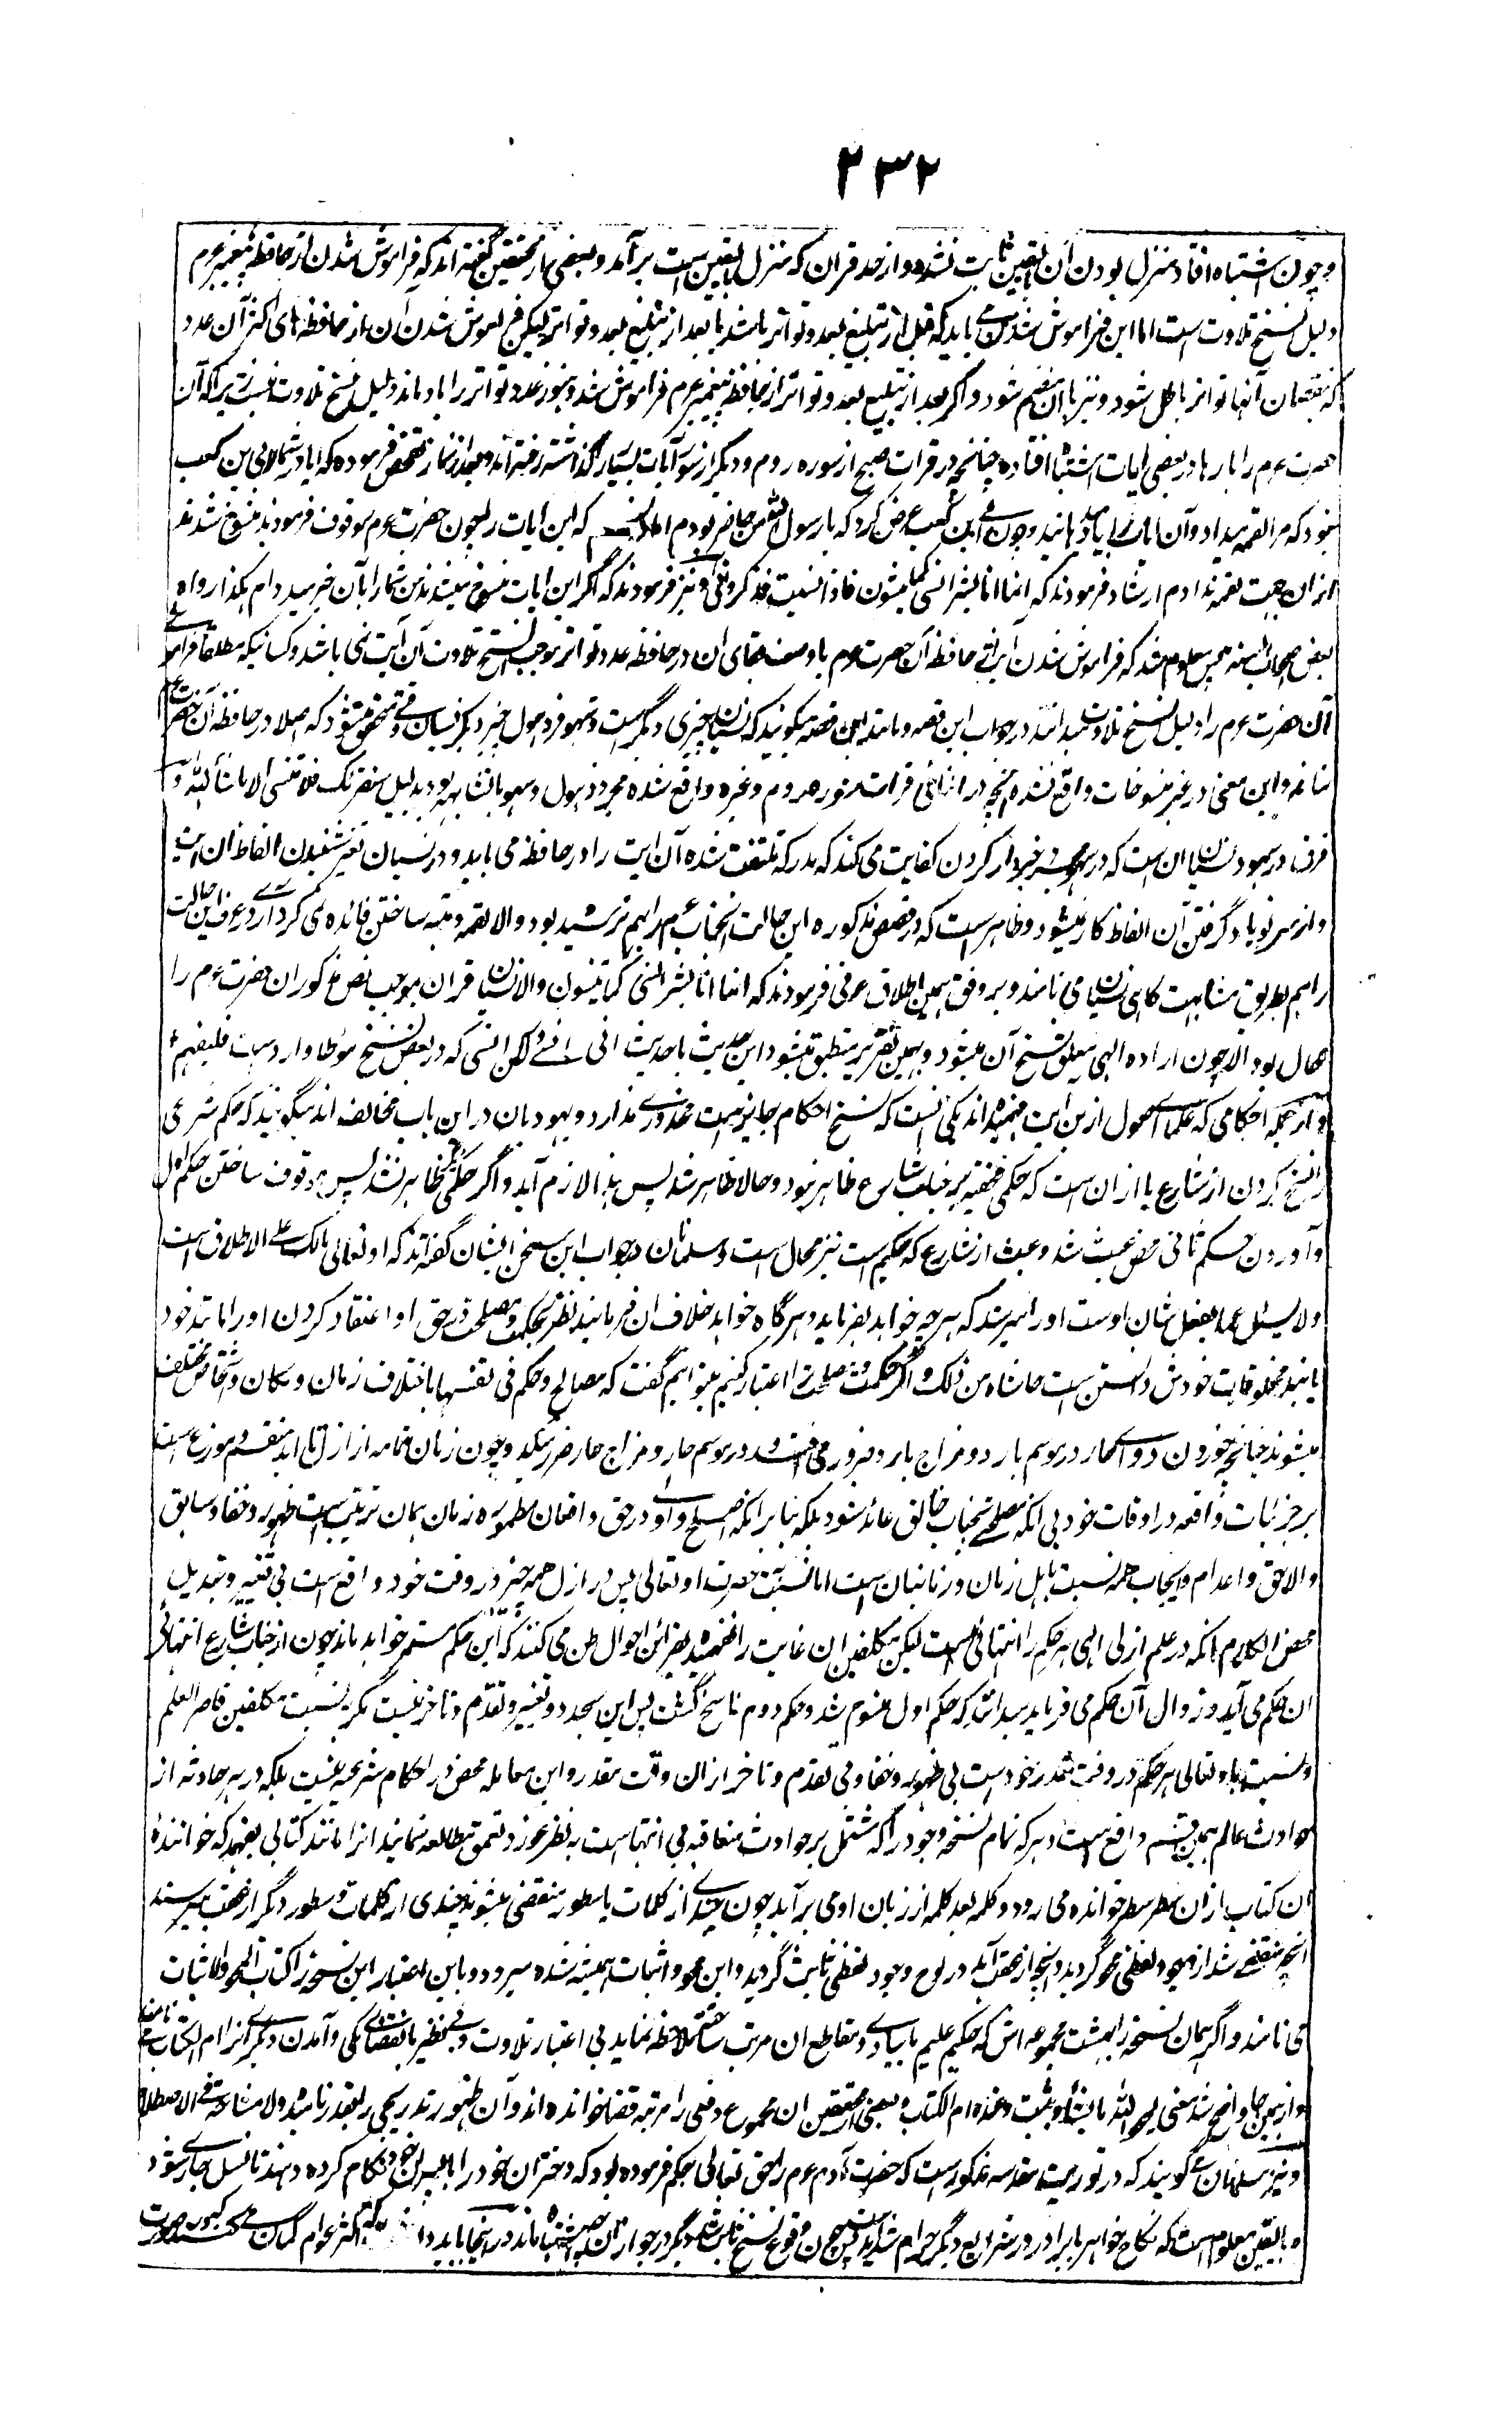 ۲۳۲
و چون اشتباه افتاد منزل بودن آن بالیقین ثابت نشد و از حد قرآن که منزل بالیقین است برآمد و بعضی از محققین گفته اند که فراموش شدن از حافظه پیغمبر عم
دلیل نسخ تلاوت است اما این فراموش شدن می باید که قبل از تبلیغ بعدد تواتر باشد یا بعد از تبلیغ بعدد تواتر لیکن فراموش شدن آن از حافظه های اکثر آن عدد
که بنقصان آنها تواتر باطل شود و نیز بآن منضم شود و اگر بعد از تبلیغ بعدد تواتر از حافظه پیغمبر عم فراموش شد و هنوز عدد تواتر را یاد ماند دلیل نسخ تلاوت نیست زیرا که آن
حضرت عم را بارها در بعضی آیات اشتباه افتاده چنانچه در قرات صبح از سوره روم و دیگر از سور آیات بسیار گذاشته رفته اند و بعد از نماز تفحص فرموده که آیا در شما ابی بن کعب
نبود که مرا لقمه میداد و آن آیات را یاد میدهانید و چون ابی بن کعب عرض کرد که یا رسول الله من حاضر بودم اما که این آیات را چون حضرت عم موقوف فرمودند منسوخ شدند
ازان جهت لقمه ندادم ارشاد فرمودند که انما انا بشر انسی کما تنسون فاذا نسیت فذکرونی و نیز فرمودند که اگر این آیات منسوخ میشدند من شما را بآن خبر میدادم هکذا رواه
بعض اصحاب السنه پس معلوم شد که فراموش شدن آیتی از حافظه آن حضرت عم باوصف بقای آن در حافظه عدد تواتر موجب نسخ تلاوت آن آیت نمی باشد و کسانیکه مطلقا فراموشی
آن حضرت عم را دلیل نسخ تلاوت میدانند در جواب این قصه و مانند این قصه میگویند که نسیان چیزی دیگر است و سهو و ذهول چیز دیگر نسیان وقتی متحقق میشود که اصلا در حافظه آن حضرت عم
نماند و این معنی در غیر منسوخات واقع نشده آنچه در اثنای قرات سوره روم و غیره واقع شده مجرد ذهول و سهو بالتشابه بود بدلیل سنقرئک فلا تنسی الا ما شاء الله و
فرق در سهو و نسیان آن است که در سهو مجرد خبردار کردن کفایت می کند که مدرکه ملتفت شده آن آیت را در حافظه می یابد و در نسیان بغیر شنیدن الفاظ آن آیت
و از سر نو یاد گرفتن آن الفاظ کار نمیشود و ظاهر است که در قصص مذکوره این حالت آنجناب عم را بهم نرسیده بود و الا لقمه و متنبه ساختن فائده نمی کرد آری در عرف این حالت
را هم بطریق مشابهت گاهی نسیان می نامند و بر وفق همین اطلاق عرفی فرمودند که انما انا بشر انسی کما تنسون و الا نسیان قرآن بموجب نص مذکور آن حضرت عم را
محال بود الا چون اراده الهی متعلق بنسخ آن میشود و بهمین تقریر منطبق میشود این حدیث با حدیث انی لا انسی و لکن انسی که در بعض نسخ موطا وارد است فلیفهم
و از جمله احکامی که علمای اصول ازین آیت فهمیده اند یکی آنست که نسخ احکام جایز است محذوری ندارد و یهودیان درین باب مخالف اند میگویند که حکم شرعی
را نسخ کردن از شارع یا از آن است که حکمی خفیه بر جناب شارع ظاهر نبود و حالا ظاهر شد پس بدا لازم آید و اگر حکمی ظاهر نشد پس موقوف ساختن حکم اول
و آوردن حکم ثانی محض عبث شد و عبث از شارع که حکیم است نیز محال است و مسلمانان در جواب این سخن ایشان گفته اند که او تعالی مالک علی الاطلاق است
و لا یسئل عما یفعل شان اوست او را میرسد که هرچه خواهد بفرماید و هرگاه خواهد خلاف آن فرمایند نظر بحکمت و مصلحت در حق او اعتقاد کردن او را مانند خود
یا مانند مخلوقات خودش دانستن است حاشاه من ذلک و اگر حکمت و مصلحت را اعتبار کنیم میتوانیم گفت که مصالح و حکم فی نفسها باختلاف زمان و مکان و اشخاص مختلف
میشوند چنانچه خوردن دوای حار در موسم بارد و مزاج بارد ضرور می افتد و در موسم حار و مزاج حار ضرر میکند و چون زمان بتمامه از ازل تا ابد منقسم و موزع است
بر جزئیات واقعه در اوقات خود بی آنکه مصلحتی بجناب خالق عائد شود بلکه بنابر آنکه اصلح و اولی در حق واقعان مطموره زمان همان ترتیب است ظهور و خفا و سابق
و لاحق و اعدام و ایجاب همه نسبت باهل زمان و زمانیان است اما نسبت بحضرت او تعالی پس در ازل همه چیز در وقت خود واقع است بی تغییر و تبدیل
محض الکلام آنکه در علم ازلی الهی هر حکم را انتهائی هست لیکن مکلفین آن غایت را نفهمیده بقرائن احوال ظن می کنند که این حکم مستمر خواهد ماند چون از جناب شارع انتهائی
آن حکم می آید و زوال آن حکم می فرماید میدانند که حکم اول منسوخ شد و حکم دوم ناسخ گشت پس این تجدد و تغییر و تقدم و تاخر نیست مگر بنسبت مکلفین قاصر العلم
و نسبت باو تعالی هر حکم در وقت مقدر خود است بی ظهور و خفا و بی تقدم و تاخر ازان وقت مقدر و این معامله محض در احکام شرعیه نیست بلکه در هر حادثه از
حوادث عالم بهمین قسم واقع است و هر که تمام نسخه وجود را که مشتمل بر حوادث متعاقبه بی انتهاست به نظر غور و تعمق مطالعه نماید آنرا مانند کتابی بفهمد که خواننده
آن کتاب ازان سطر سطر خوانده می رود و کلمه بعد کلمه از زبان او می برآید چون چندی از کلمات یا سطور منقضی میشوند چندی از کلمات و سطور دیگر از عقب میرسند
آنچه منقضی شد از وجود لفظی محو گردید و آنچه از عقب آمد در لوح وجود لفظی ثابت گردید و این محو و اثبات همیشه شده میرود و باین اعتبار این نسخه را کتاب المحو و الاثبات
می نامند و اگر همان نسخه را بهیئت مجموعه اش که حکیم علیم با مبادی و مقاطع آن مرتب ساخته ملاحظه نماید بی اعتبار تلاوت و بی نظر بانقضای یکی و آمدن دیگری آنرا ام الکتاب نامند
و از همین جا واضح شد معنی یمحو الله ما یشاء و یثبت و عنده ام الکتاب و بعضی محققین آن مجموع دفعی را مرتبه قضا خوانده اند و آن ظهور تدریجی را بقدر نامند و لا مشاحة فی الاصطلاح
و نیز مسلمانان می گویند که در توریت مقدسه مذکور است که حضرت آدم عم را حق تعالی حکم فرموده بود که دختران خود را با پسران خود نکاح کرده دهند تا نسل جاری شود
و بالیقین معلوم است که نکاح خواهر با برادر در شرایع دیگر حرام شد پس چون وقوع نسخ ثابت شد دیگر در جواز آن چه اشتباه ماند در اینجا باید دانست که اکثر عوام گمان می کنند که در صورت